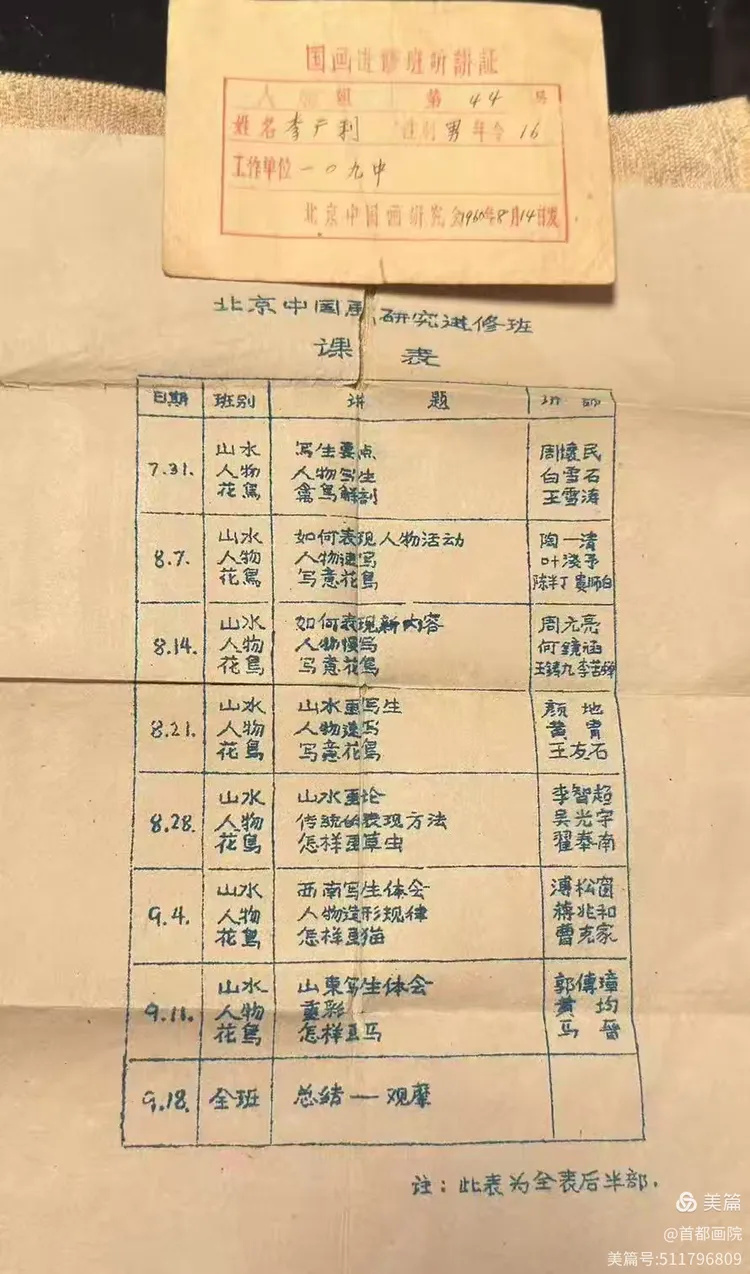 国画进修班听讲証
人物组 第 44 号
姓名 李广利 性别 男 年令 16
工作单位 一〇九中
北京中国画研究会1960年8月14日发
北京中国画研究进修班
课 表
日期 班别 讲 题 讲 师
7.31. 山水 写生要点 周懷民
人物 人物写生 白雪石
花鳥 禽鳥解剖 王雪涛
8.7. 山水 如何表现人物活动 陶一清
人物 人物速写 叶浅予
花鳥 写意花鳥 陈半丁 娄师白
8.14. 山水 如何表现新内容 周元亮
人物 人物慢写 何鏡涵
花鳥 写意花鳥 王鑄九 李苦禅
8.21. 山水 山水画写生 颜地
人物 人物速写 黄胄
花鳥 写意花鳥 王友石
8.28. 山水 山水画论 李智超
人物 传统的表现方法 吴光宇
花鳥 怎样画草虫 翟奉南
9.4. 山水 西南写生体会 溥松窗
人物 人物造形规律 蒋兆和
花鳥 怎样画猫 曹克家
9.11. 山水 山東写生体会 郭傳璋
人物 重彩 黄均
花鳥 怎样画马 马晋
9.18. 全班 总结一观摩
注：此表为全表后半部.
美篇
@首都画院
美篇号:511796809